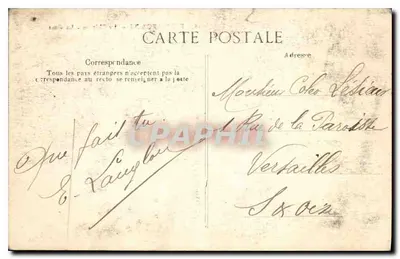 CARTE POSTALE
Correspondance
Tous les pays étrangers n'acceptent pas la
correspondance au recto se renseigner à la poste
Adresse
Que fait tu
E. Langlou
Monsieur
1 Rue de la Paroisse
Versailles
S & Oise
CPAPHIL